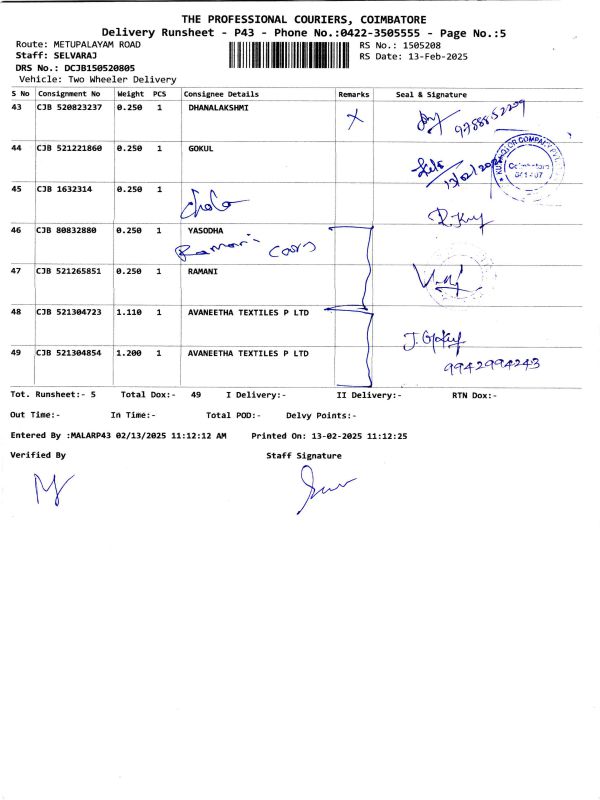 THE PROFESSIONAL COURIERS, COIMBATORE
Delivery Runsheet - P43 - Phone No.:0422-3505555 - Page No.:5
Route: METUPALAYAM ROAD
RS No.: 1505208
Staff: SELVARAJ
RS Date: 13-Feb-2025
DRS No.: DCJB150520805
Vehicle: Two Wheeler Delivery
S No Consignment No Weight PCS Consignee Details Remarks Seal & Signature
43 CJB 520823237 0.250 1 DHANALAKSHMI
44 CJB 521221860 0.250 1 GOKUL
45 CJB 1632314 0.250 1
46 CJB 80832880 0.250 1 YASODHA
Ramani Cars
47 CJB 521265851 0.250 1 RAMANI
48 CJB 521304723 1.110 1 AVANEETHA TEXTILES P LTD
49 CJB 521304854 1.200 1 AVANEETHA TEXTILES P LTD
9942994243
Tot. Runsheet:- 5 Total Dox:- 49 I Delivery:- II Delivery:- RTN Dox:-
Out Time:- In Time:- Total POD:- Delvy Points:-
Entered By :MALARP43 02/13/2025 11:12:12 AM Printed On: 13-02-2025 11:12:25
Verified By Staff Signature